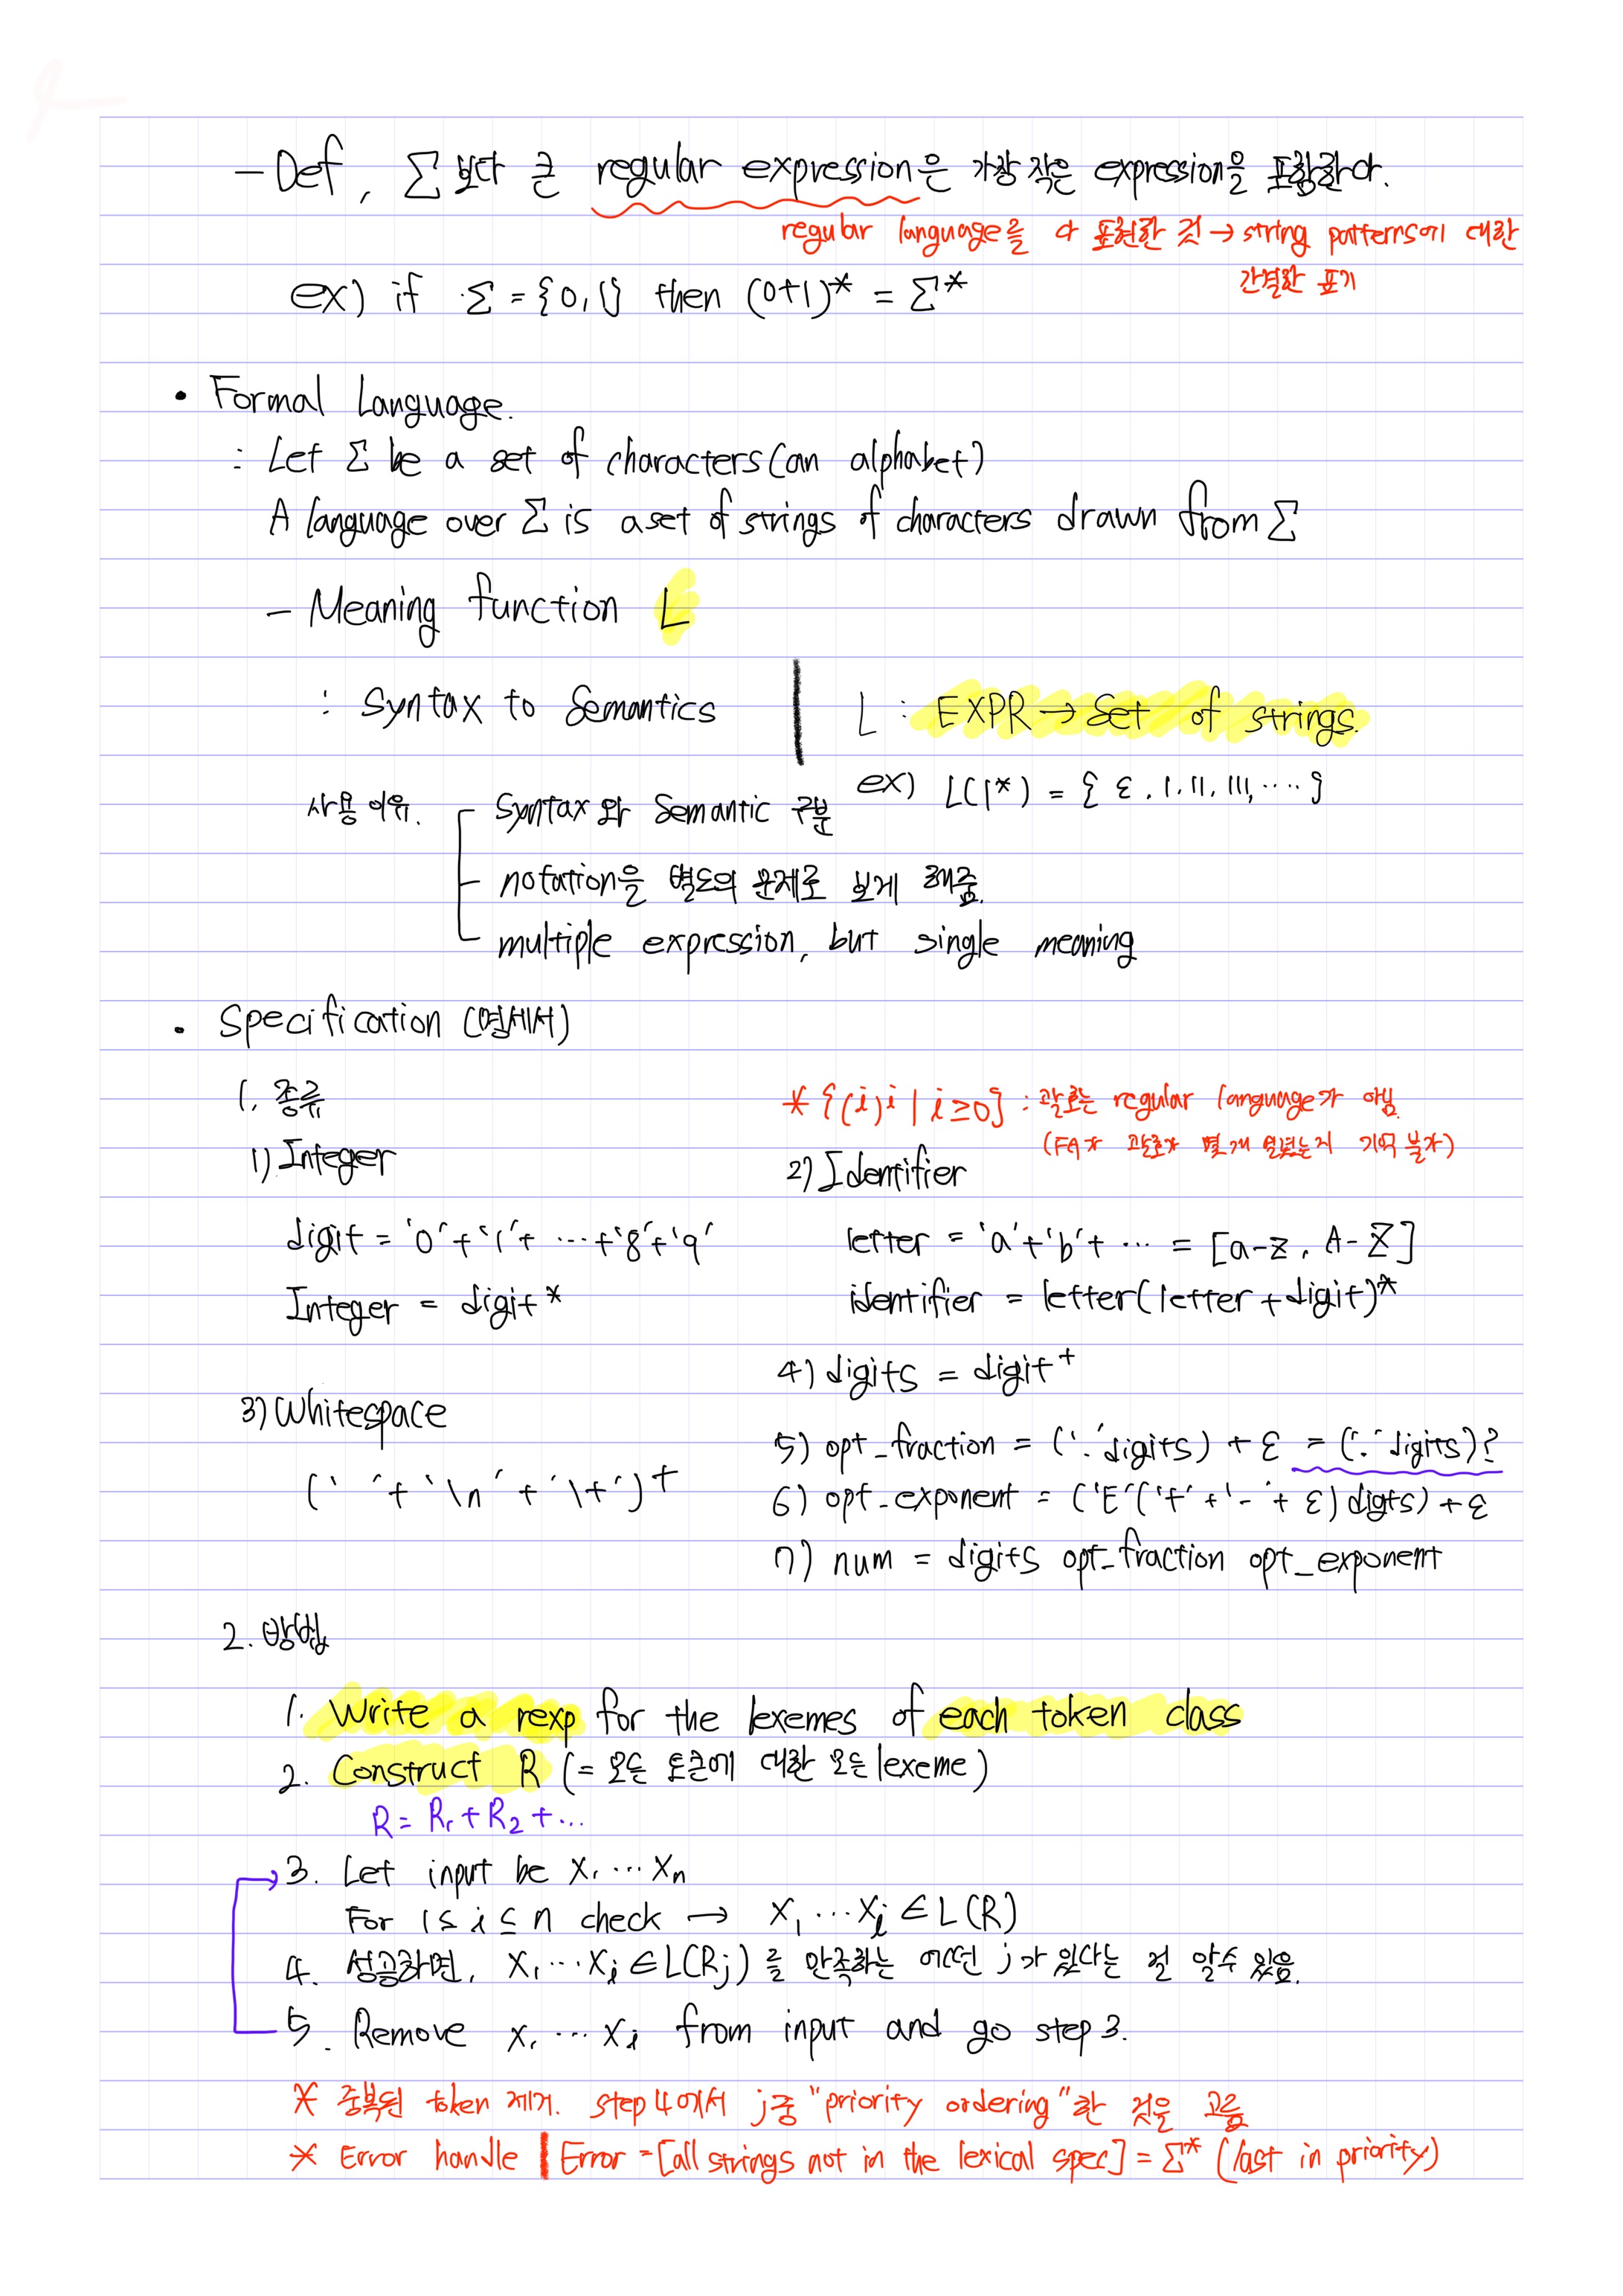 - Def, Σ 보다 큰 regular expression은 가장 작은 expression을 포함한다.
regular language를 다 표현한 것 → string patterns에 대한
간결한 표기
ex) if Σ = {0, 1} then (0+1)* = Σ*
• Formal Language.
: Let Σ be a set of characters (an alphabet)
A language over Σ is a set of strings of characters drawn from Σ
- Meaning function L
: Syntax to Semantics | L : EXPR → Set of strings.
ex) L(1*) = { ε, 1, 11, 111, ···· }
사용 이유. Syntax 와 Semantic 구분
notation을 별도의 문제로 보게 해줌.
multiple expression, but single meaning
• Specification (명세서)
1. 종류
* {(i)i | i≥0} : 괄호는 regular language가 아님.
(FA가 괄호가 몇 개 열렸는지 기억 불가)
1) Integer
digit = '0'+'1'+ ··· +'8'+'9'
Integer = digit*
2) Identifier
letter = 'a'+'b'+ ··· = [a-z, A-Z]
identifier = letter(letter+digit)*
3) Whitespace
(' '+'\n'+'\t')+
4) digits = digit+
5) opt_fraction = ('.'digits) + ε = ('.'digits)?
6) opt_exponent = ('E'('+'+'-'+ ε) digts) + ε
7) num = digits opt_fraction opt_exponent
2. 방법
1. Write a rexp for the lexemes of each token class
2. Construct R (= 모든 토큰에 대한 모든 lexeme)
R = R1 + R2 + ...
3. Let input be x1 ··· xn
For 1 ≤ i ≤ n check → x1 ··· xi ∈ L(R)
4. 성공하면, x1 ··· xi ∈ L(Rj) 를 만족하는 어떤 j가 있다는 걸 알수 있음.
5. Remove x1 ··· xi from input and go step 3.
* 중복된 token 제거. step 4에서 j중 "priority ordering"한 것을 고름
* Error handle | Error = [all strings not in the lexical spec] = Σ* (last in priority)